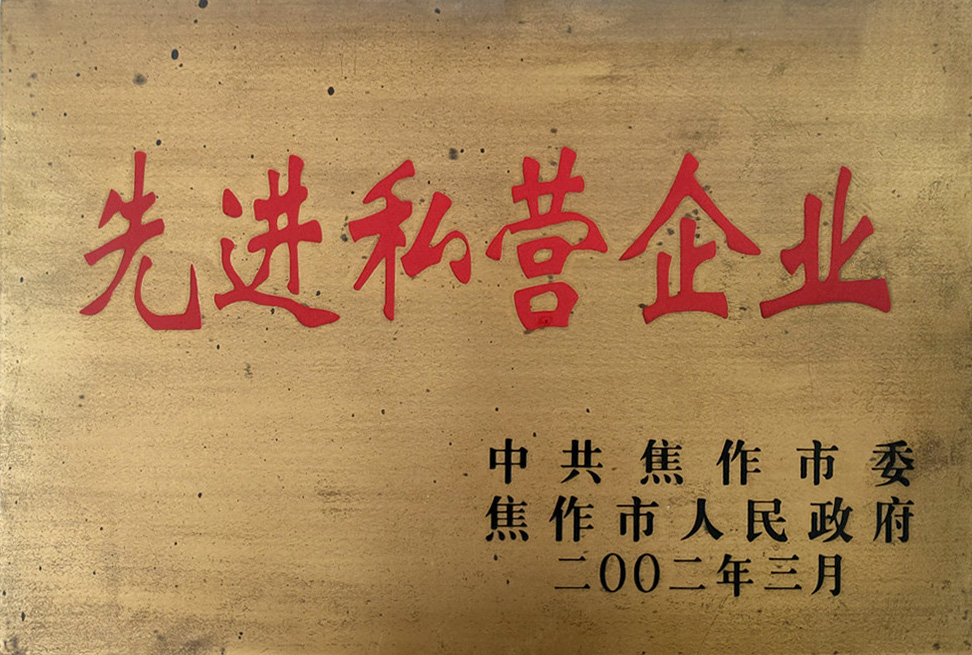 先进私营企业
中共焦作市委
焦作市人民政府
二〇〇二年三月